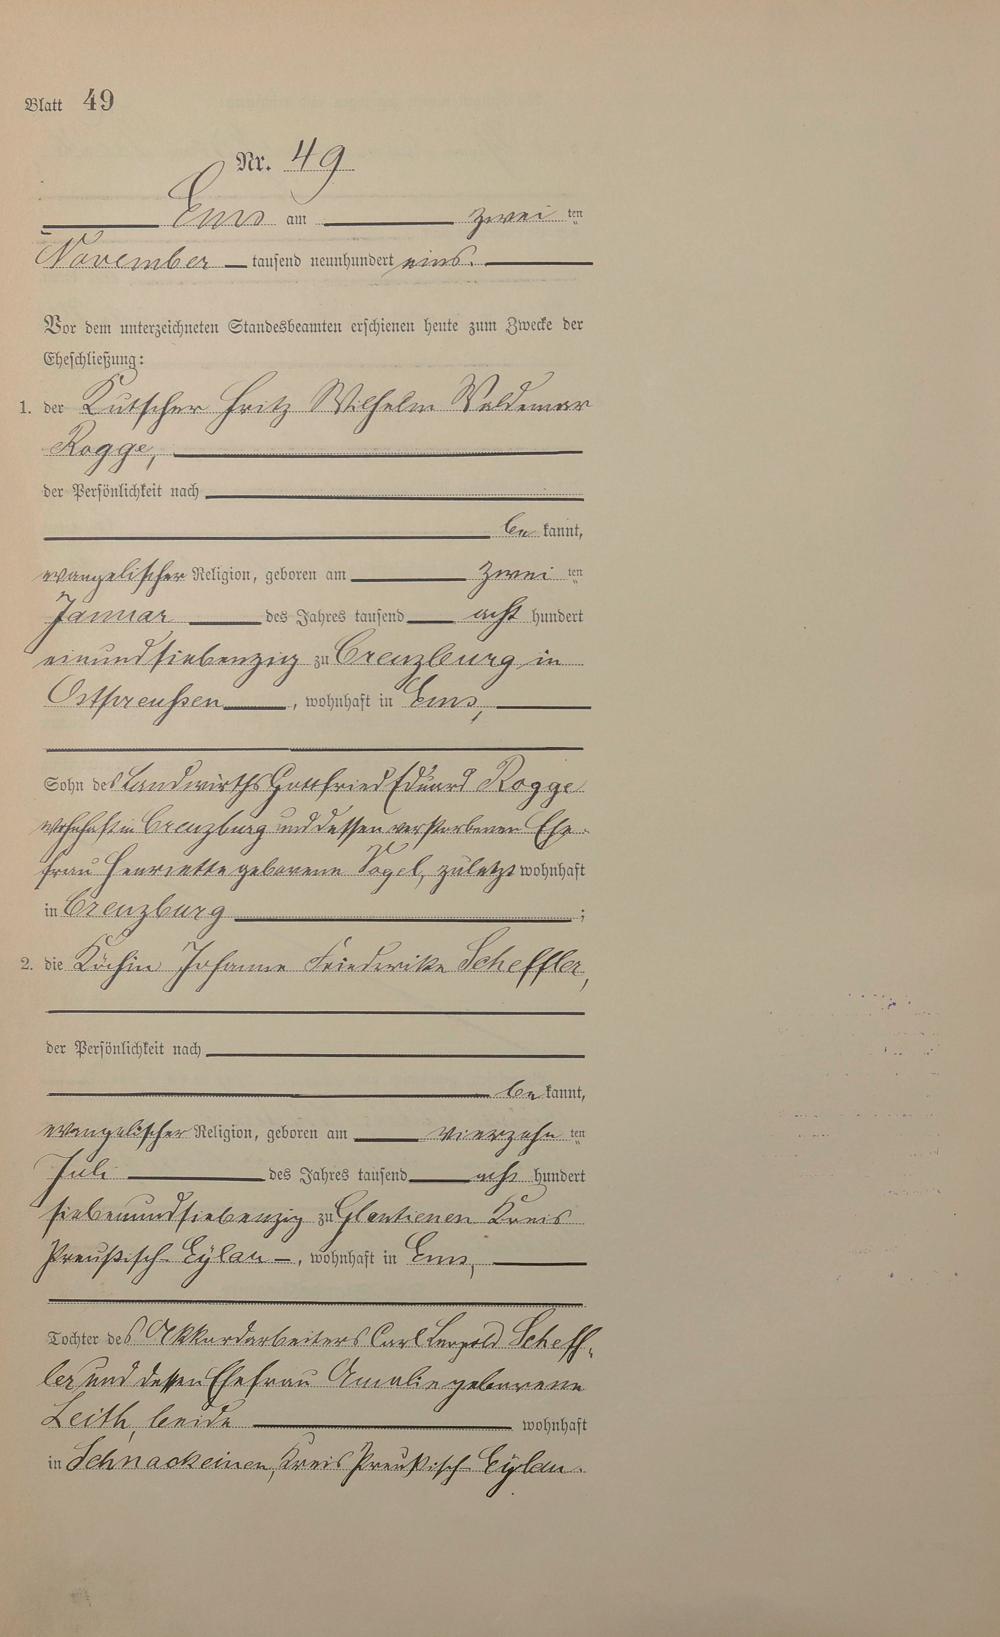 Blatt 49
Nr. 49
Ems am zwei ten
November tausend neunhundert eins.
Vor dem unterzeichneten Standesbeamten erschienen heute zum Zwecke der
Eheschließung:
1. der Kutscher Fritz Wilhelm Waldemar
Rogge,
der Persönlichkeit nach
be kannt,
evangelischer Religion, geboren am zwei ten
Januar des Jahres tausend acht hundert
einundsiebenzig zu Creuzburg in
Ostpreußen, wohnhaft in Ems,
Sohn des Landwirths Gottfried Eduard Rogge
wohnhaft in Creuzburg und dessen verstorbenen Ehe-
frau Henriette geborene Vogel, zuletzt wohnhaft
in Creuzburg ;
2. die Köchin Johanne Friederike Scheffler,
der Persönlichkeit nach
be kannt,
evangelischer Religion, geboren am vierzehn ten
Juli des Jahres tausend acht hundert
siebenundsiebenzig zu Glautienen Kreis
Preußisch-Eylau, wohnhaft in Ems,
Tochter des Akkordarbeiters Carl Leopold Scheff-
ler und dessen Ehefrau Amalie geborene
Leith, beide wohnhaft
in Schnackeinen, Kreis Preußisch-Eylau.